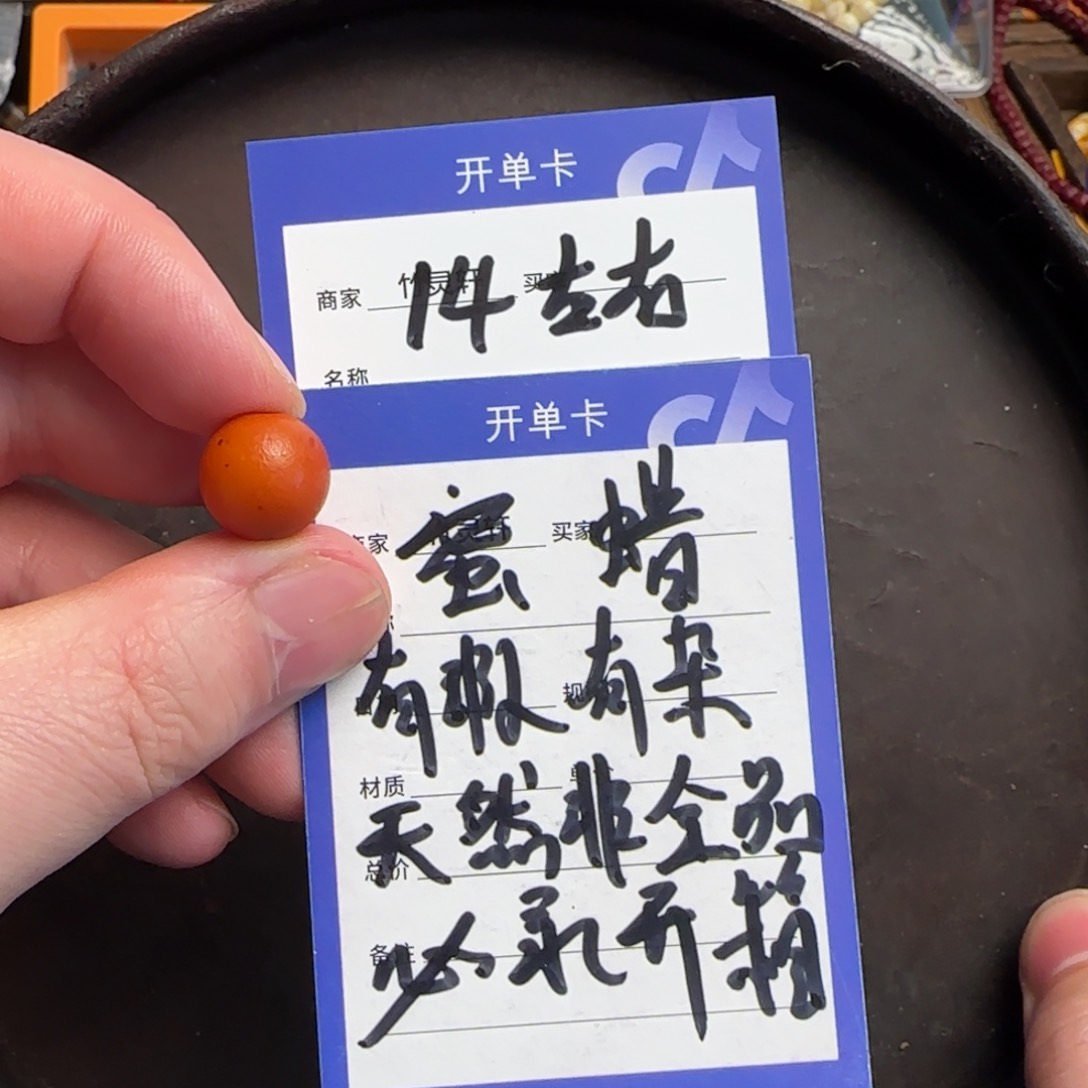 开单卡
商家 竹灵轩 买家
14左右
名称
开单卡
家 竹灵轩 买家
蜜蜡
称
有瑕有杂
规
材质
天然非全品
总价
必录开箱
备注